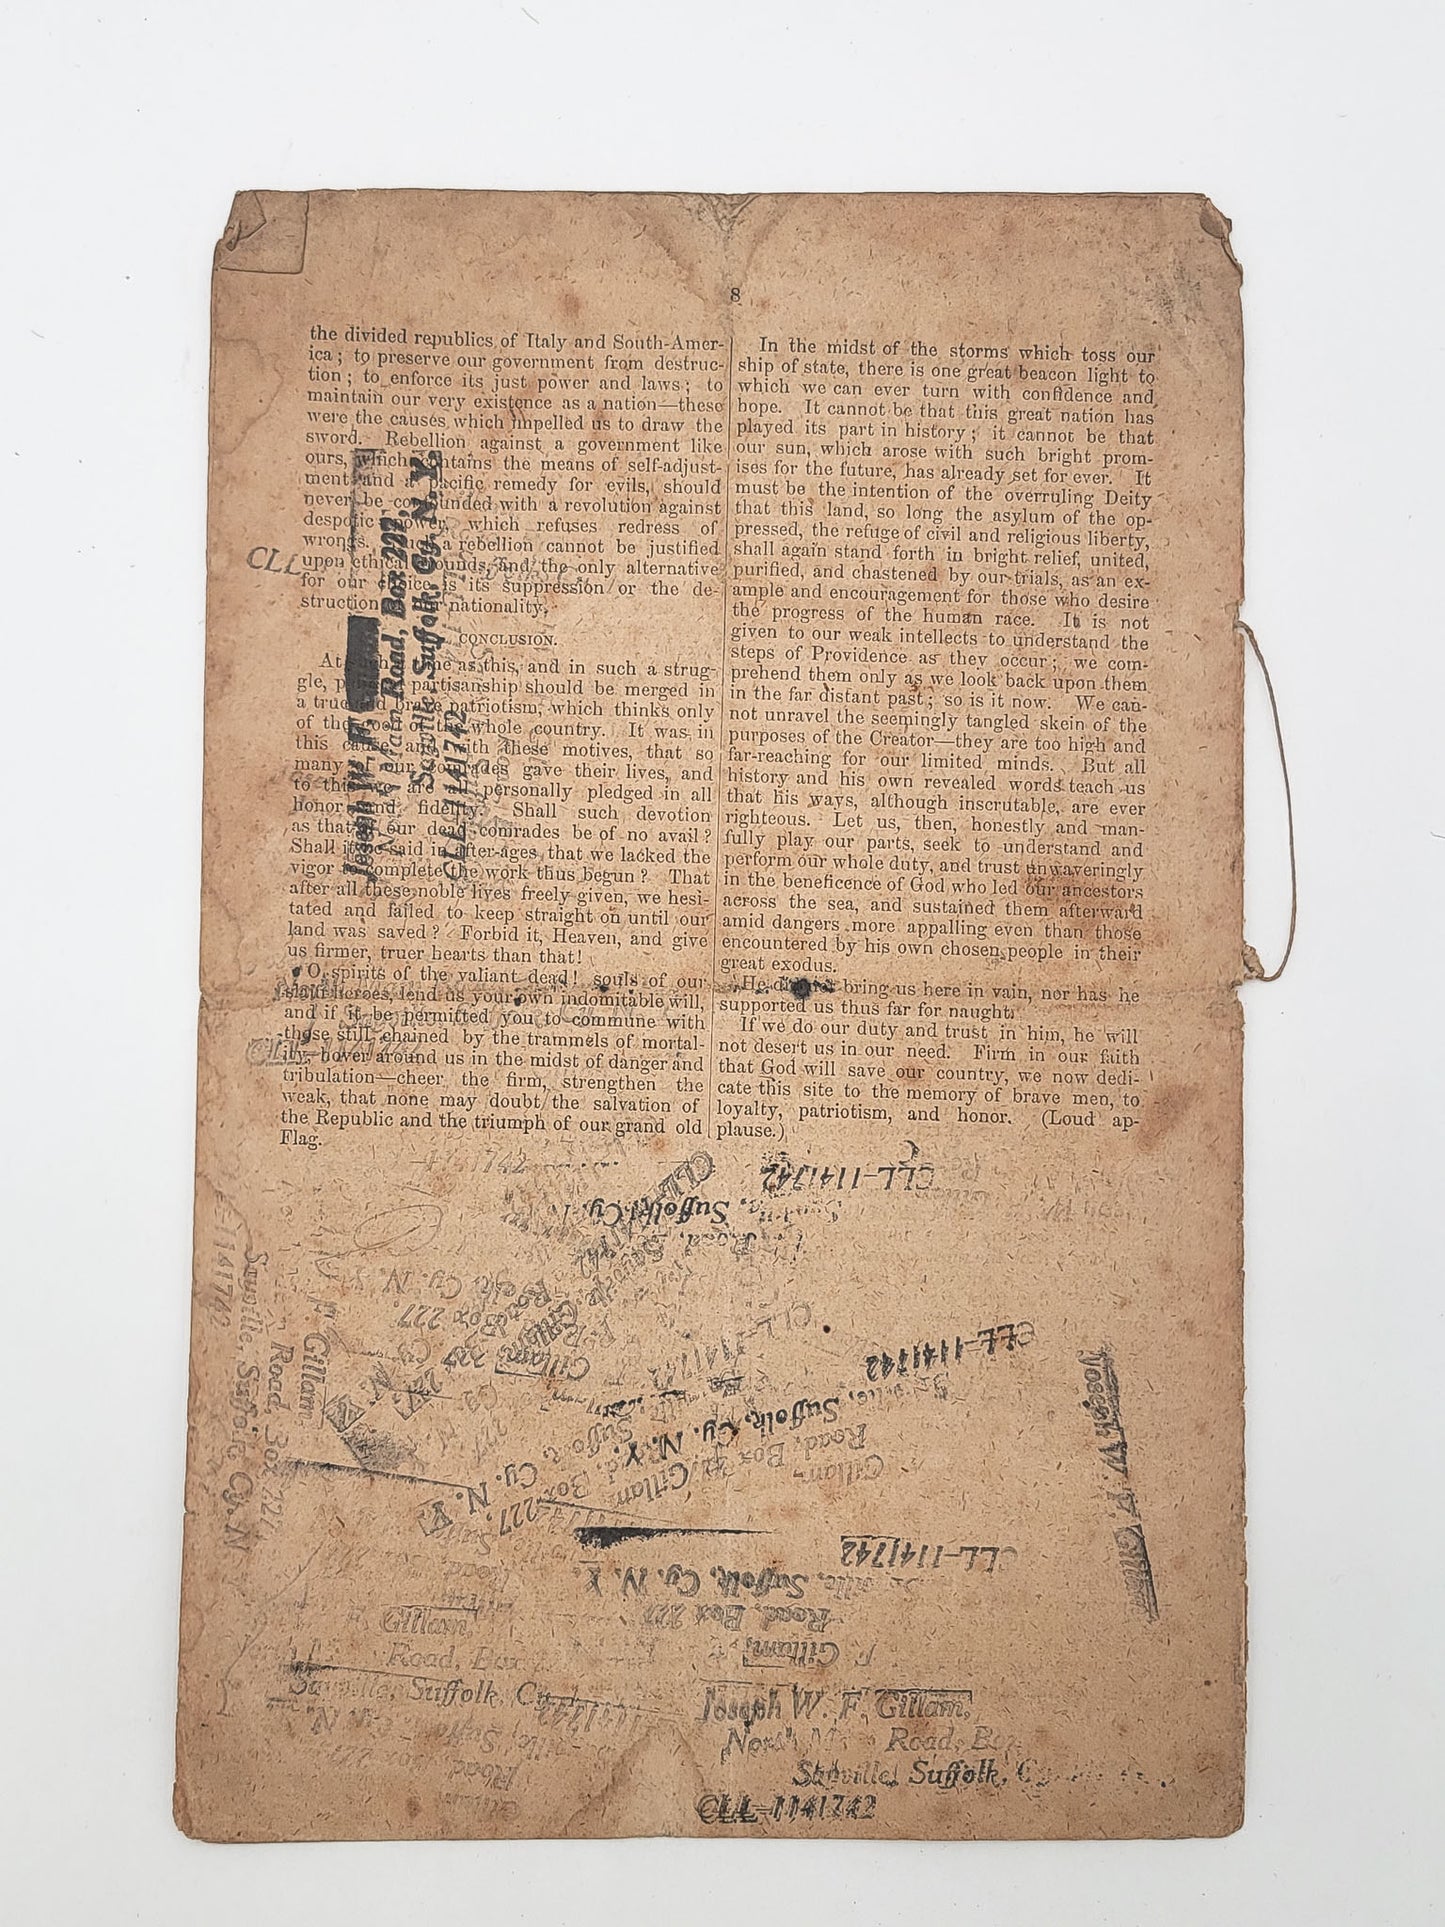 8
the divided republics of Italy and South-Amer-
ica; to preserve our government from destruc-
tion; to enforce its just power and laws; to
maintain our very existence as a nation—these
were the causes which impelled us to draw the
sword. Rebellion against a government like
ours, which contains the means of self-adjust-
ment and a pacific remedy for evils, should
never be confounded with a revolution against
despotic power, which refuses redress of
wrongs. Such a rebellion cannot be justified
upon ethical grounds, and the only alternative
for our choice is its suppression or the de-
struction of our nationality.
CONCLUSION.
At such a time as this, and in such a strug-
gle, partisanship should be merged in
a true and brave patriotism, which thinks only
of the good of the whole country. It was in
this cause, and with these motives, that so
many of our comrades gave their lives, and
to this we are all personally pledged in all
honor and fidelity. Shall such devotion
as that of our dead comrades be of no avail?
Shall it be said in after-ages, that we lacked the
vigor to complete the work thus begun? That
after all these noble lives freely given, we hesi-
tated and failed to keep straight on until our
land was saved? Forbid it, Heaven, and give
us firmer, truer hearts than that!
O, spirits of the valiant dead! souls of our
slain heroes, lend us your own indomitable will,
and if it be permitted you to commune with
those still chained by the trammels of mortal-
ity, hover around us in the midst of danger and
tribulation—cheer the firm, strengthen the
weak, that none may doubt the salvation of
the Republic and the triumph of our grand old
Flag.
In the midst of the storms which toss our
ship of state, there is one great beacon light to
which we can ever turn with confidence and
hope. It cannot be that this great nation has
played its part in history; it cannot be that
our sun, which arose with such bright prom-
ises for the future, has already set for ever. It
must be the intention of the overruling Deity
that this land, so long the asylum of the op-
pressed, the refuge of civil and religious liberty,
shall again stand forth in bright relief, united,
purified, and chastened by our trials, as an ex-
ample and encouragement for those who desire
the progress of the human race. It is not
given to our weak intellects to understand the
steps of Providence as they occur; we com-
prehend them only as we look back upon them
in the far distant past; so is it now. We can-
not unravel the seemingly tangled skein of the
purposes of the Creator—they are too high and
far-reaching for our limited minds. But all
history and his own revealed words teach us
that his ways, although inscrutable, are ever
righteous. Let us, then, honestly and man-
fully play our parts, seek to understand and
perform our whole duty, and trust unwaveringly
in the beneficence of God who led our ancestors
across the sea, and sustained them afterward
amid dangers more appalling even than those
encountered by his own chosen people in their
great exodus.
He did not bring us here in vain, nor has he
supported us thus far for naught.
If we do our duty and trust in him, he will
not desert us in our need. Firm in our faith
that God will save our country, we now dedi-
cate this site to the memory of brave men, to
loyalty, patriotism, and honor. (Loud ap-
plause.)
Joseph W. F.
Main Road, Box 227,
Sayville, Suffolk, Cy. N. Y.
CLL-1141742
CLL
CLL-1141742
CLL-1141742
Suffolk, Cy.
CLL-1141742
Suffolk, Cy. N. Y.
Road, Box
Gillam
Joseph W. F. Gillam
Gillam
Road, Box 227,
Sayville, Suffolk, Cy. N
1141742
CLL-1141742
Sayville, Suffolk, Cy. N. Y.
Road, Box 227
F. Gillam,
F. Gillam,
Road, Box
Sayville, Suffolk, Cy.
Joseph W. F. Gillam,
North Road, Box
Sayville, Suffolk, C
CLL-1141742